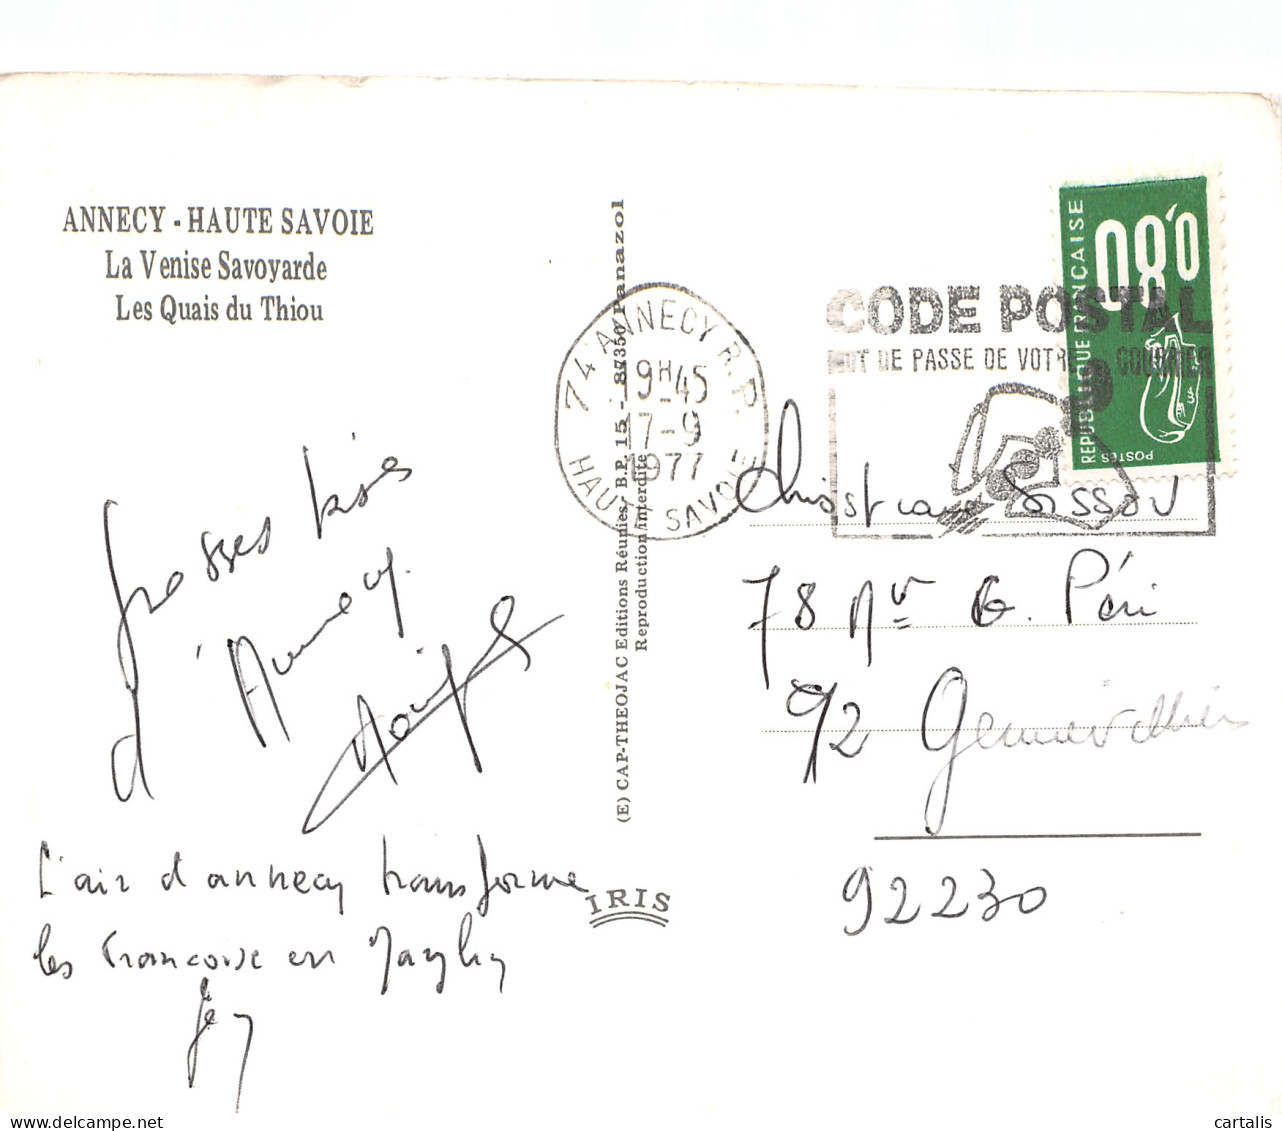 ANNECY - HAUTE SAVOIE
La Venise Savoyarde
Les Quais du Thiou
REPUBLIQUE FRANCAISE
0,80
POSTES
CODE POSTAL
MOT DE PASSE DE VOTRE COURRIER
74 ANNECY R.P.
9H-45
17-9
1977
HAUTE SAVOIE
(E) CAP-THEOJAC Editions Réunies/ B.P. 15 - 87350 Panazol
Reproduction interdite
Grosses bises
d'Annecy.
L'air d'annecy transforme
les Francoise en
IRIS
78 Av G. Péri
92 Gennevilliers
92230
delcampe.net
cartalis